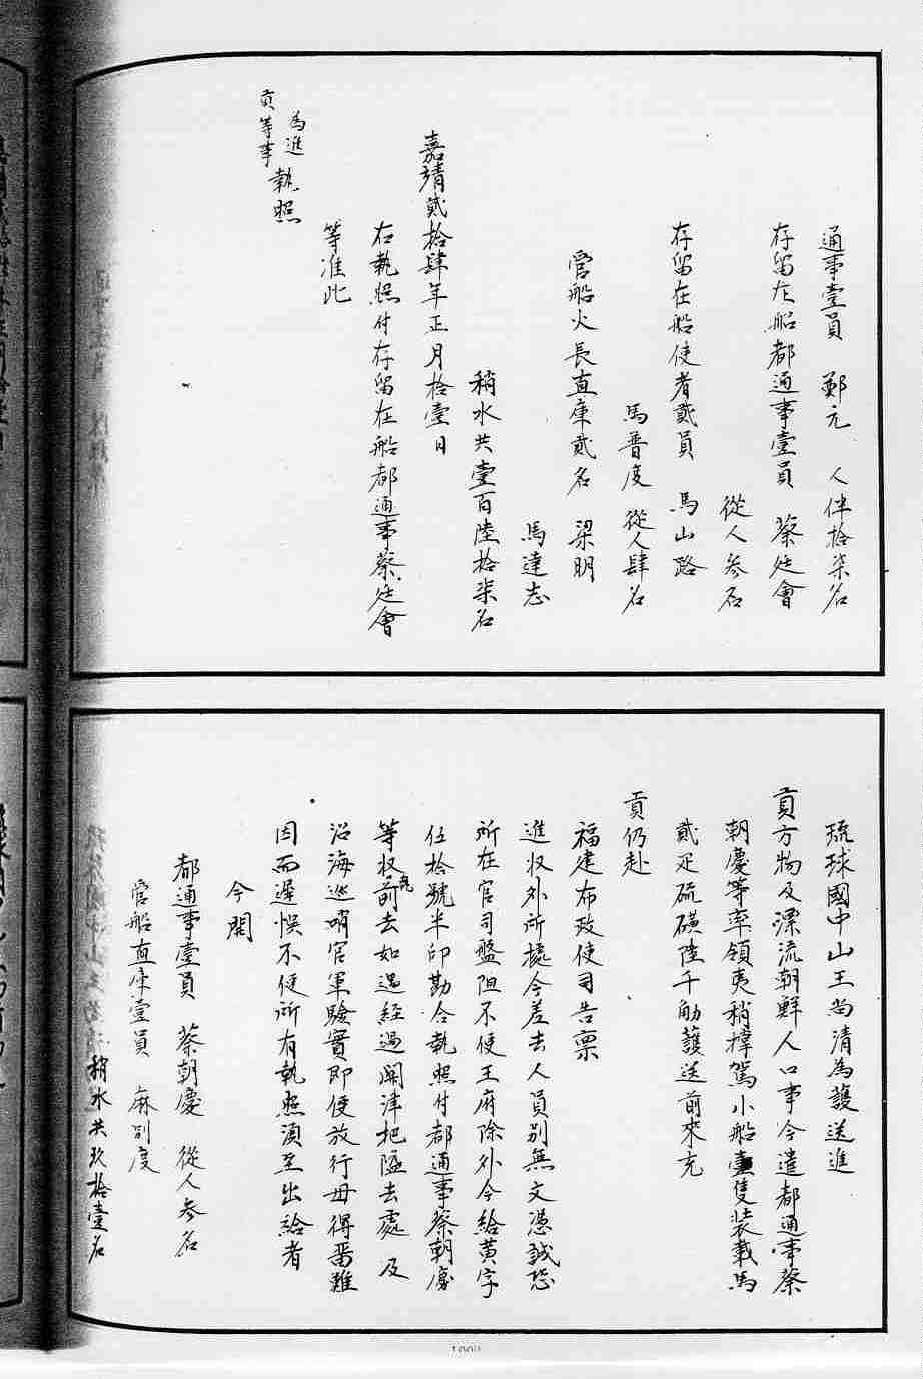 通事壹員　鄭元　人伴拾柒名
存留在船都通事壹員　蔡廷會
從人叁名
存留在船使者貳員　馬山路
馬普度　從人肆名
管船火長直庫貳名　梁明
馬達志
稍水共壹百陸拾柒名
嘉靖貳拾肆年正月拾壹日
右執照付存留在船都通事蔡廷會
等准此
為進
貢等事
執照
琉球國中山王尚清為護送進
貢方物及漂流朝鮮人口事今遣都通事蔡
朝慶等率領夷稍撑駕小船壹隻裝載馬
貳疋硫磺陸千觔護送前來充
貢仍赴
福建布政使司告稟
進收外所據今差去人員別無文憑誠恐
所在官司盤阻不便王府除外今給黃字
伍拾號半印勘合執照付都通事蔡朝慶
等收執前去如遇經過關津把隘去處及
沿海巡哨官軍驗實即便放行毋得留難
因而遲悞不便所有執照須至出給者
今開
都通事壹員　蔡朝慶　從人叁名
管船直庫壹員　麻別度
稍水共玖拾壹名